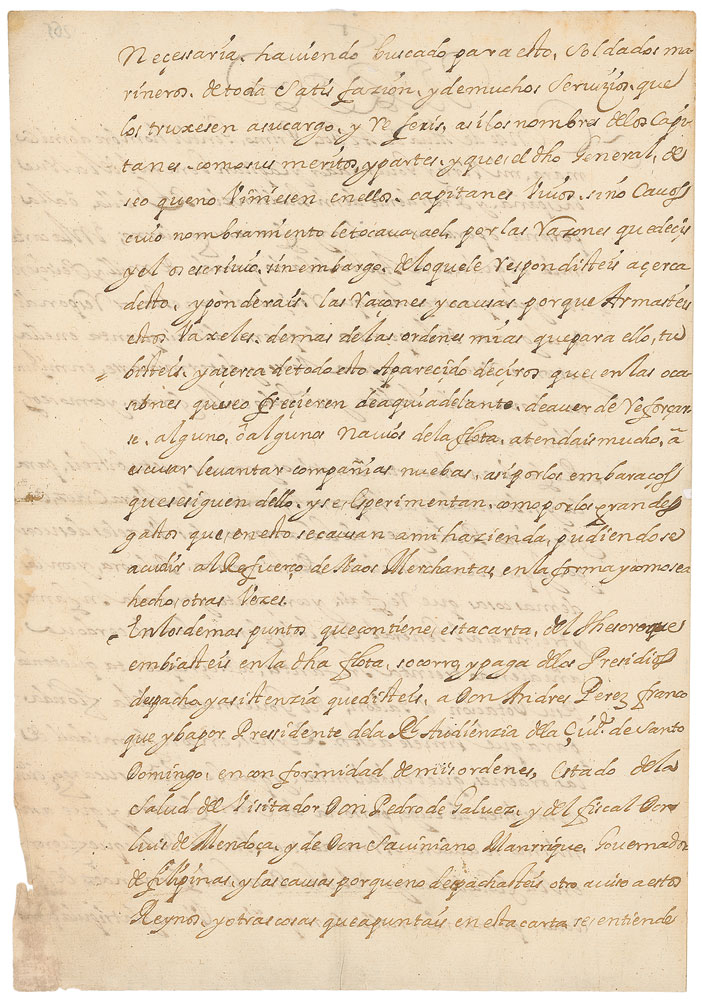 Necessaria. haviendo buscado para esto, Soldados ma
rineros. de toda Satis fazión, y de muchos Servizios. que
los truxesen a su cargo, y Referis, asi los nombres de los Capi
tanes. como sus meritos, y partes. y que el dho General, de
seo que no Viniesen en ellos. capitanes Vivos. sino Cavos
cuio nombramiento le tocava, a el, por las Razones que decis
y el os escrivió. sin embargo. de lo que le respondisteis açerca
desto, y ponderais. las Raçones y causas porque Armasteis
estos Vaxeles. demas de las ordenes mias que para ello, tu
bisteis. y açerca de todo esto A pareçido deçiros que en las oca
siones que se o freçieren de aqui adelante. de aver de Reforçar
se. alguno, ó algunos navios de la flota, atendais mucho, a
escusar levantar compañias nuebas, asi por los embaraços
que se siguen dello. y se Esperimentan, como por los grandes
gastos que, en esto se causan a mi hazienda, pudiendo se
acudir al Refuerço de Naos Merchantas, en la forma y como se a
hecho, otras Vezes.
En los demas puntos que contiene esta carta, del thesoro que
embiasteis en la dha flota, socorro, y paga de los Presidios
despacho, y asistenzia que disteis, a Don Andres Perez franco
que yba por Pressidente de la Rl Audienzia de la Çiud. de Santo
Domingo, en con formidad de mis ordenes, Estado de la
Salud del Visitador Don Pedro de Galvez, y del fiscal Don
luis de Mendoça, y de Don Saviniano Manrrique, Governador
de filipinas, y las causas porque no despachasteis otro aviso a estos
Reynos y otras cosas que apuntais en esta carta se entiende